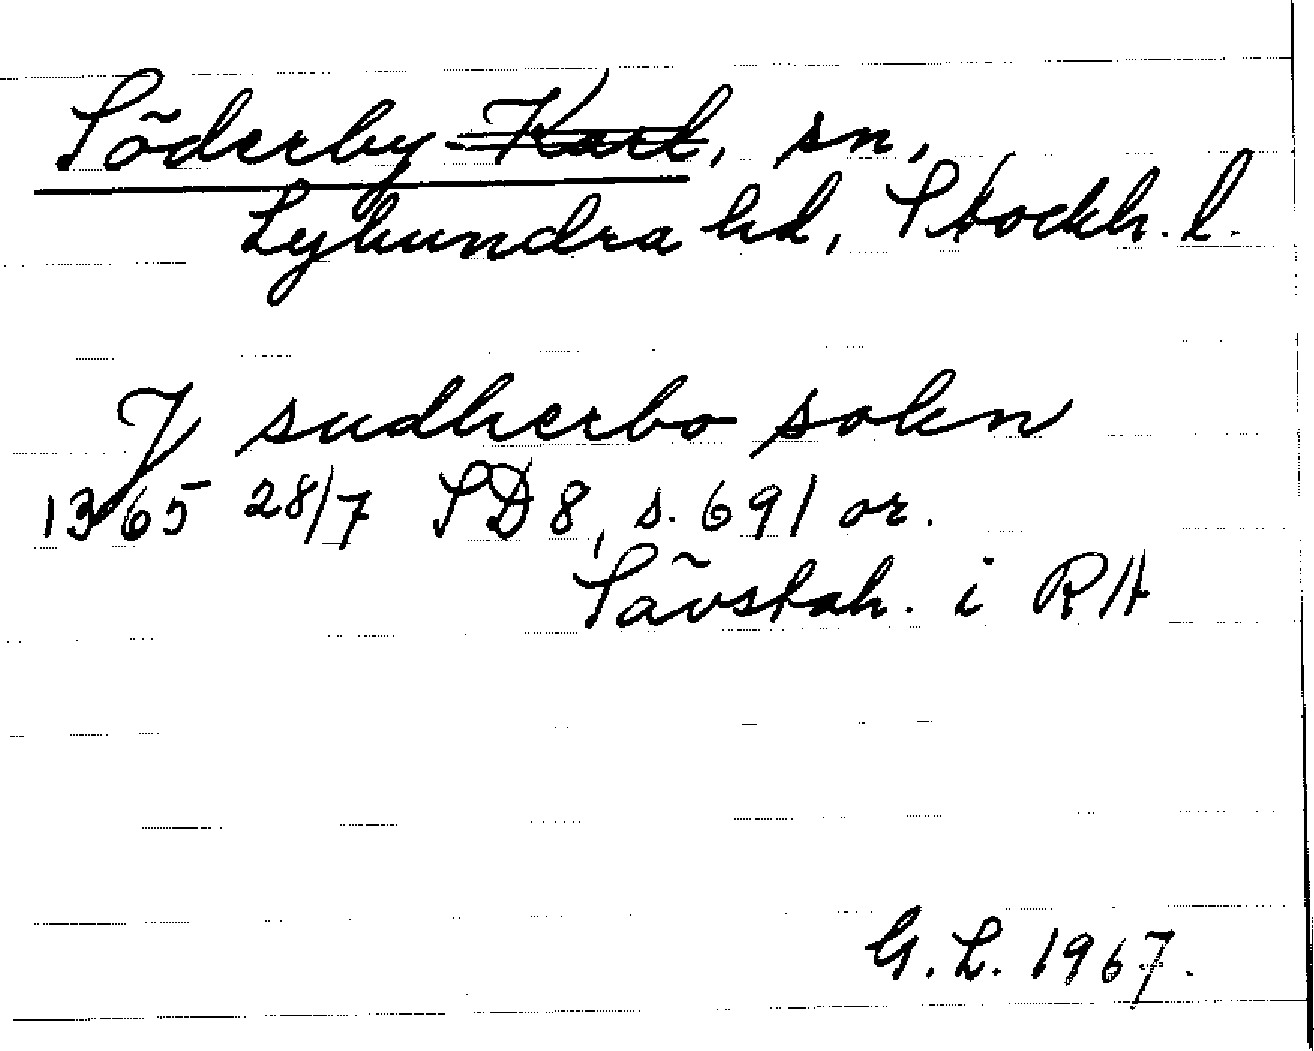 Söderby-Karl, sn,
Lyhundra hd, Stockh. l.
J sudherbo sokn
1365 28/7 SD 8, s. 691 or.
Sävstah. i RA
G. L. 1967.